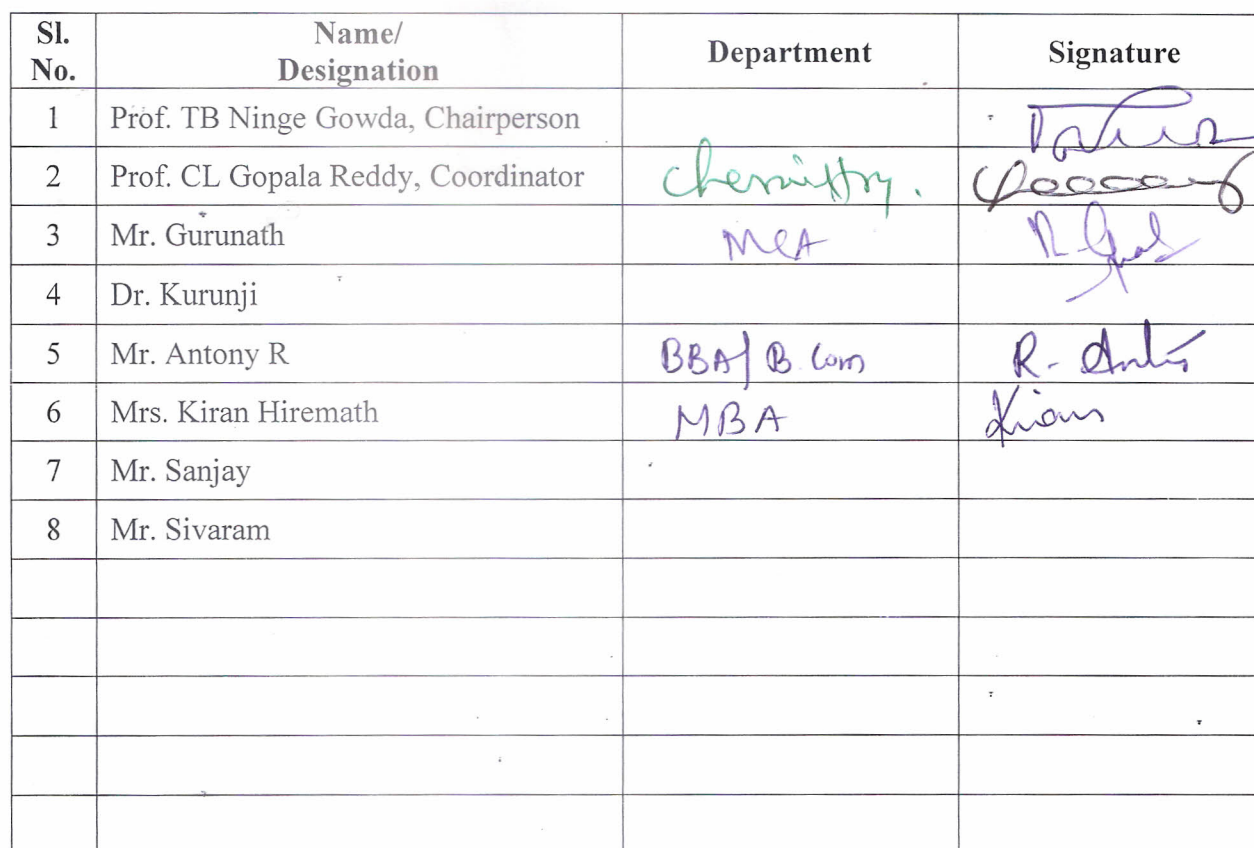 Sl. No. Name/ Designation Department Signature
1 Prof. TB Ninge Gowda, Chairperson
2 Prof. CL Gopala Reddy, Coordinator Chemistry.
3 Mr. Gurunath MCA
4 Dr. Kurunji
5 Mr. Antony R BBA/ B.Com R-
6 Mrs. Kiran Hiremath MBA Kiran
7 Mr. Sanjay
8 Mr. Sivaram